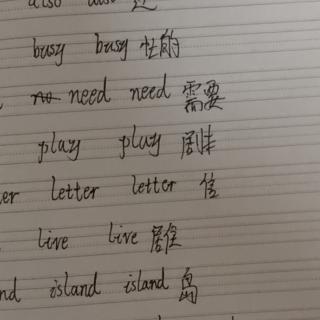 also also
busy busy 忙的
need need 需要
play play 剧本
er letter letter 信
live live 居住
nd island island 岛